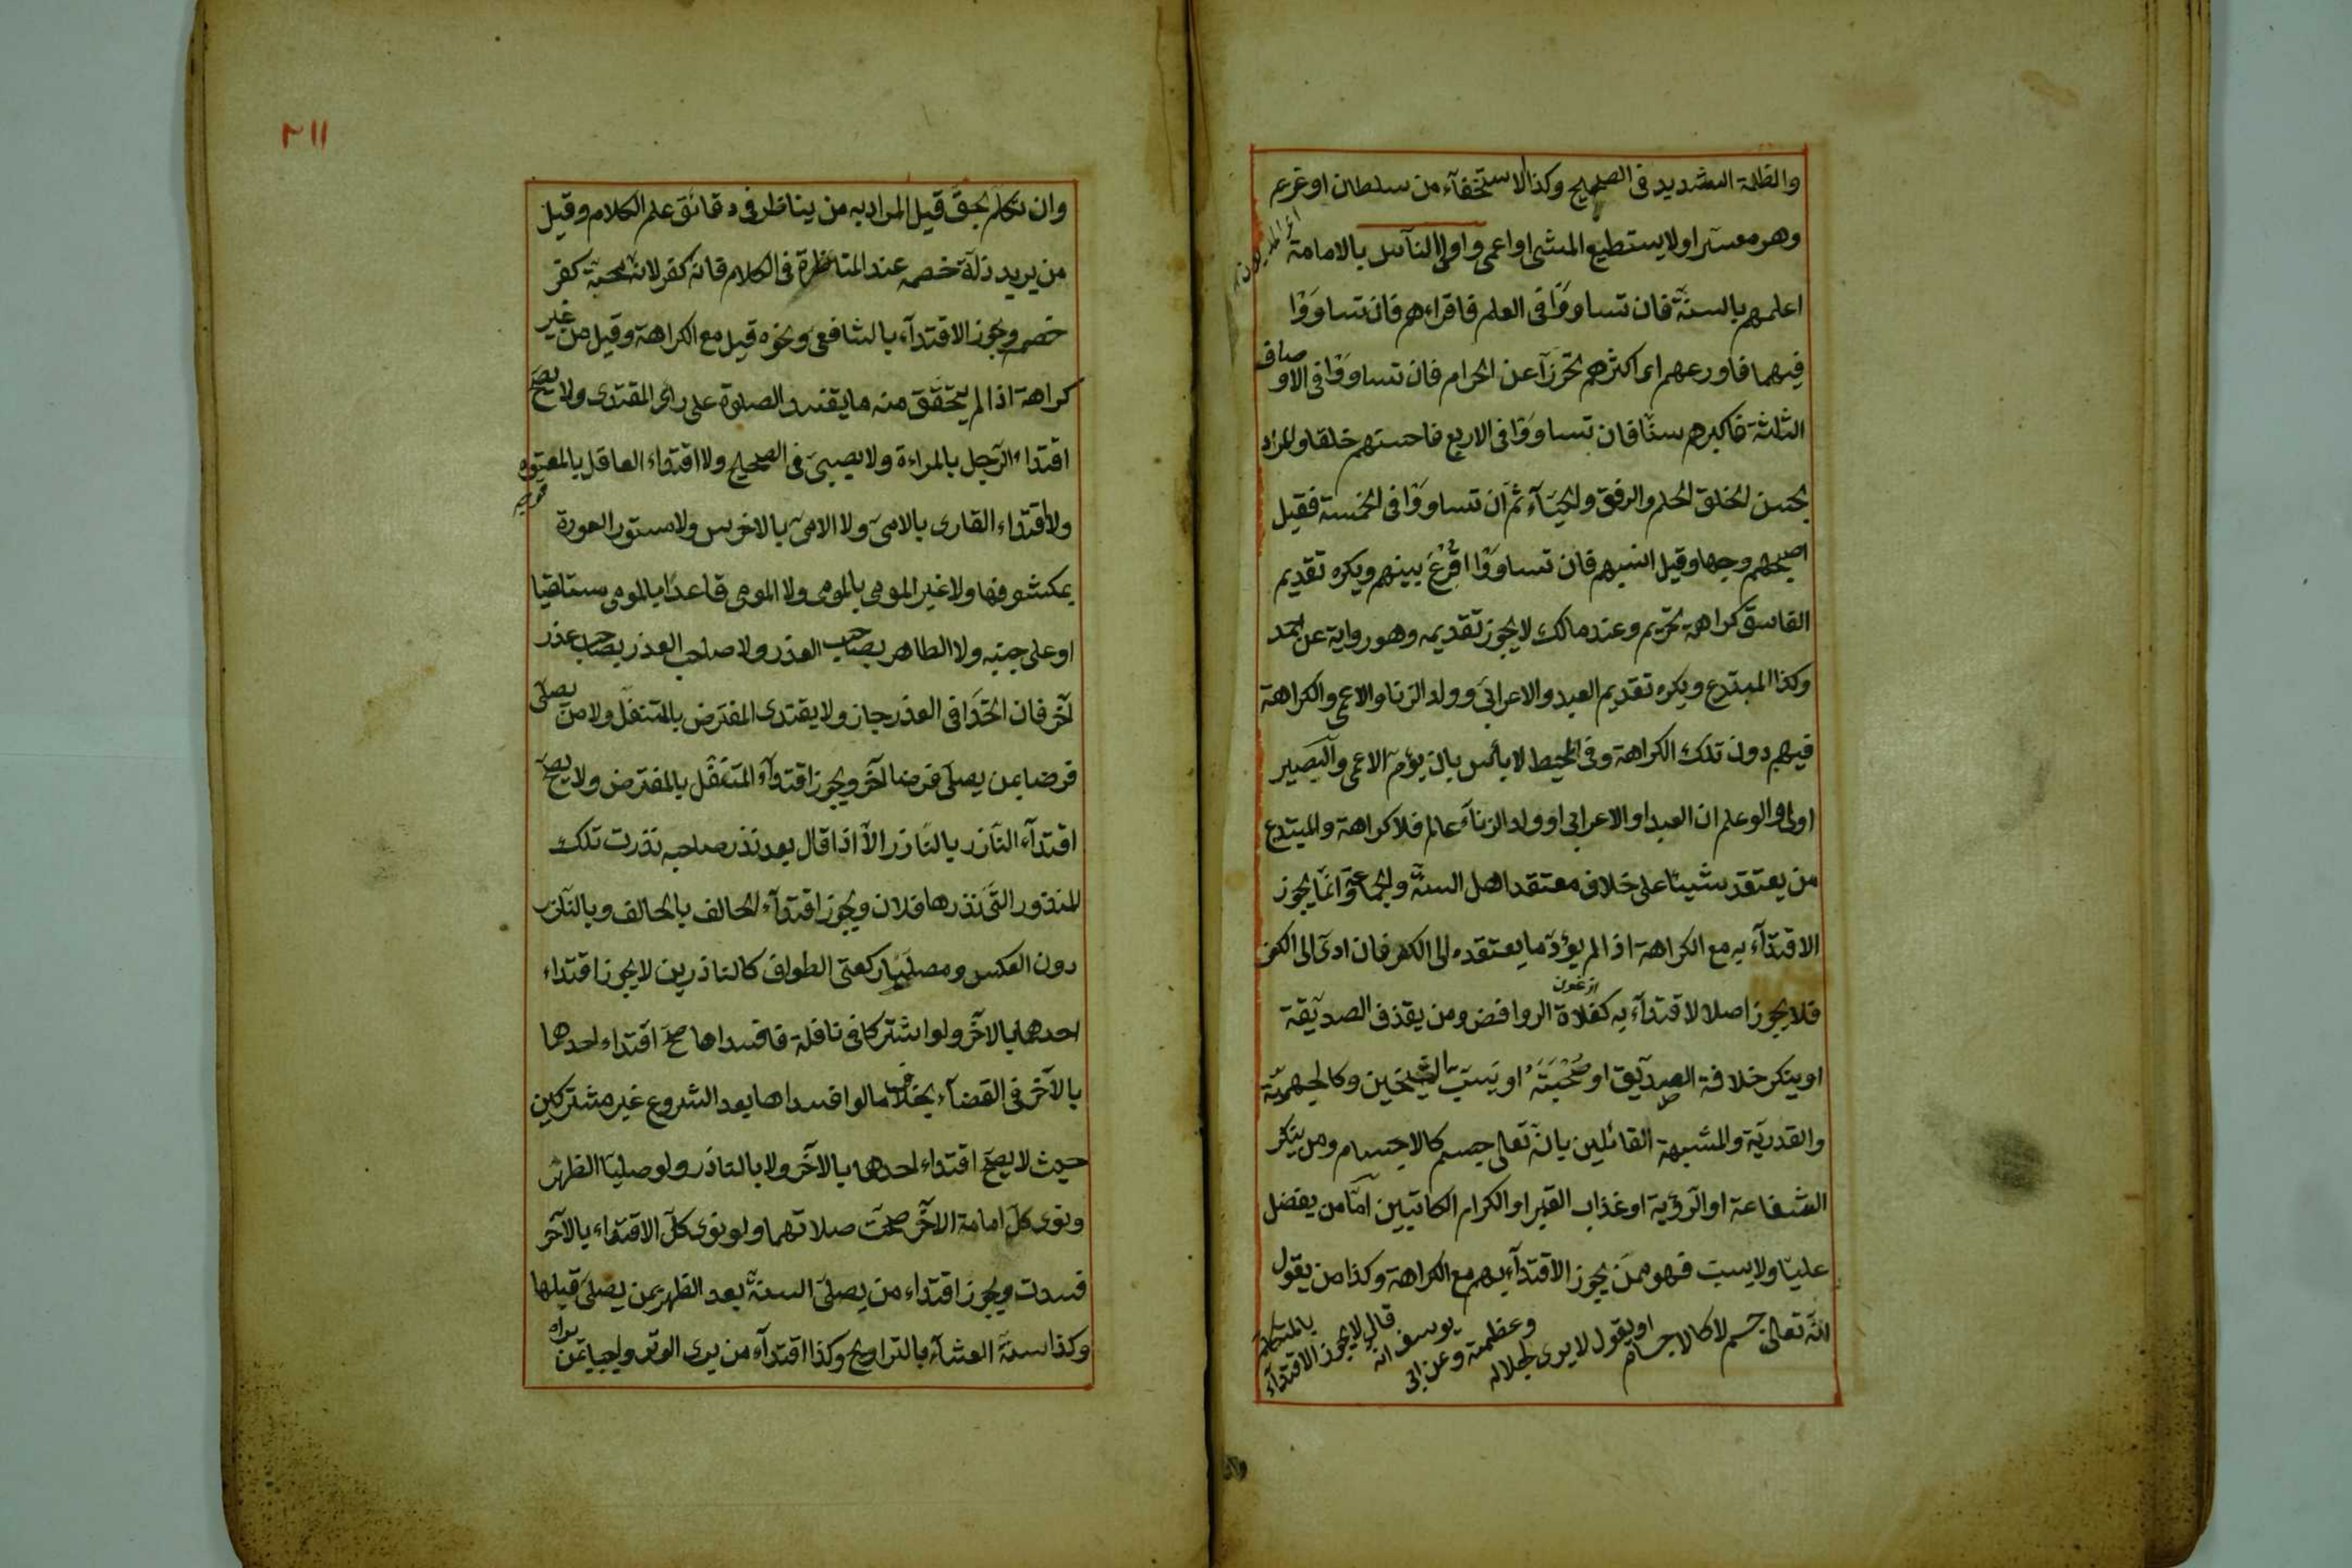 والظلمة الشديد فى الصحيح وكذا الاستخفآء من سلطان او غريم
وهو معسر او لا يستطيع المشى او اعمى واولى الناس بالامامة
اعلمهم بالسنة فان تساووا فى العلم فاقراءهم فان تساووا
فيهما فاورعهم اى اكثرهم تحرزا عن الحرام فان تساووا فى الاوصاف
الثلثة فاكبرهم سنا فان تساووا فى الاربع فاحسنهم خلقا والمراد
بحسن الخلق الحلم والرفق والحيآء ثم ان تساووا فى الخمسة فقيل
اصبحهم وجها وقيل انسبهم فان تساووا اقرع بينهم ويكره تقديم
الفاسق كراهة تحريم وعند مالك لا يجوز تقديمه وهو رواية عن احمد
وكذا المبتدع ويكره تقديم العبد والاعرابى وولد الزنا والاعمى والكراهة
فيهم دون تلك الكراهة وفى المحيط لا بأس بان يؤم الاعمى والبصير
اولى ولو علم ان العبد او الاعرابى او ولد الزناء عالم فلا كراهة والمبتدع
من يعتقد شيئا على خلاف معتقد اهل السنة والجماعة وانما يجوز
الاقتدآء به مع الكراهة اذا لم يؤد ما يعتقده الى الكفر فان ادى الى الكفر
فلا يجوز اصلا الاقتدآء به كغلاة الروافض ومن يقذف الصديقة
او ينكر خلافة الصديق او صحبته او يسب الشيخين وكالجهمية
والقدرية والمشبهة القائلين بانه تعالى جسم كالاجسام ومن ينكر
الشفاعة او الرؤية او عذاب القبر او الكرام الكاتبين اما من يفضل
عليا ولا يسب فهو ممن يجوز الاقتدآء بهم مع الكراهة وكذا من يقول
انه تعالى جسم لا كالاجسام او يقول لا يرى لجلاله وعظمته وعن ابى يوسف انه قال لا يجوز الاقتدآء بالمتكلم
وان
٢١١
وان تكلم بحق قيل المراد به من يناظر فى دقائق علم الكلام وقيل
من يريد زلة خصمه عند المناظرة فى الكلام فانه كفر لانه محبة كفر
خصمه ويجوز الاقتدآء بالشافعى ونحوه قيل مع الكراهة وقيل من غير
كراهة اذا لم يتحقق منه ما يفسد الصلوة على رأى المقتدى ولا يصح
اقتداء الرجل بالمراءة ولا بصبى فى الصحيح ولا اقتداء العاقل بالمعتوه
ولا اقتداء القارى بالامى ولا الامى بالاخرس ولا مستور العورة
بمكشوفها ولا غير المومى بالمومى ولا المومى قاعدا بالمومى مستلقيا
او على جنبه ولا الطاهر بصاحب العذر ولا صاحب العذر بصاحب عذر
آخر فان اتحدا فى العذر جاز ولا يقتدى المفترض بالمتنفل ولا من يصلى
فرضا بمن يصلى فرضا آخر ويجوز اقتدآء المتنفل بالمفترض ولا يصح
اقتدآء الناذر بالناذر الا اذا قال بعد نذر صاحبه نذرت تلك
المنذور التى نذرها فلان ويجوز اقتدآء الحالف بالحالف وبالناذر
دون العكس ومصليا ركعتى الطواف كالناذرين لا يجوز اقتداء
احدهما بالاخر ولو اشتركا فى نافلة فافسداها صح اقتداء احدهما
بالآخر فى القضآء بخلاف ما لو افسداها بعد الشروع غير مشتركين
حيث لا يصح اقتداء احدهما بالآخر ولا بالناذر ولو صليا الظهر
ونوى كل امامة الاخر صحت صلاتهما ولو نوى كل الاقتداء بالآخر
فسدت ويجوز اقتداء من يصلى السنة بعد الظهر بمن يصلى قبلها
وكذا سنة العشآء بالتراويح وكذا اقتدآء من يرى الوتر واجبا بمن يراه